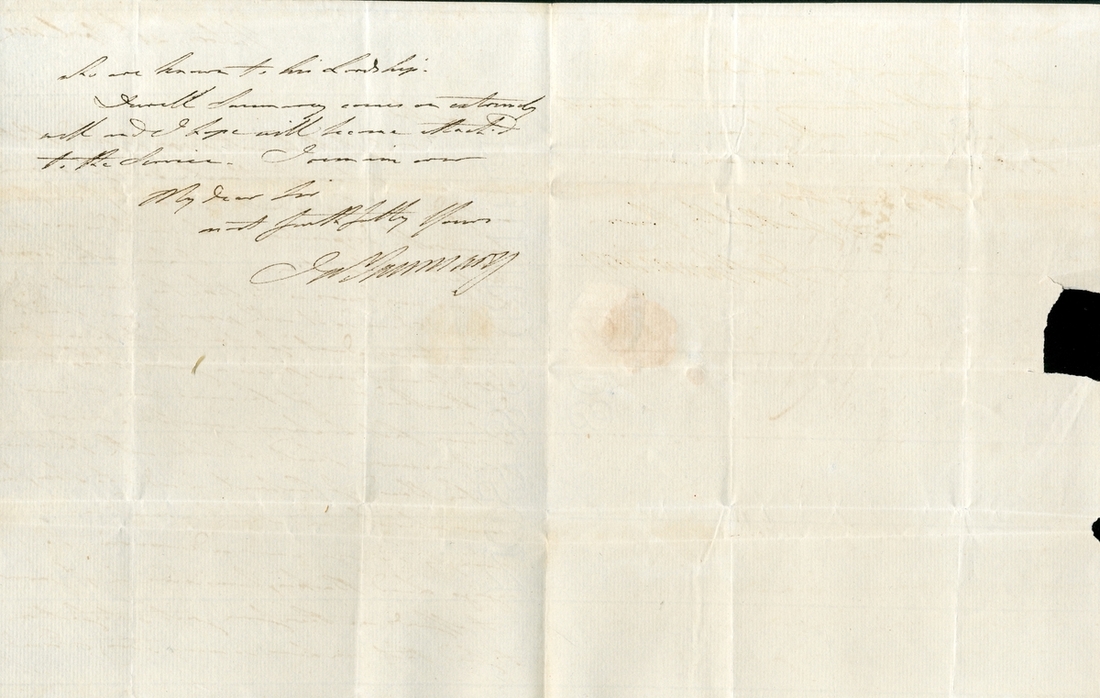 who are known to his Lordship.
Durell Saumarez comes on extremely
well and I hope will become attach'd
to the Service. I remain ever
My dear Sir
most faithfully Yours
Jas Saumarez